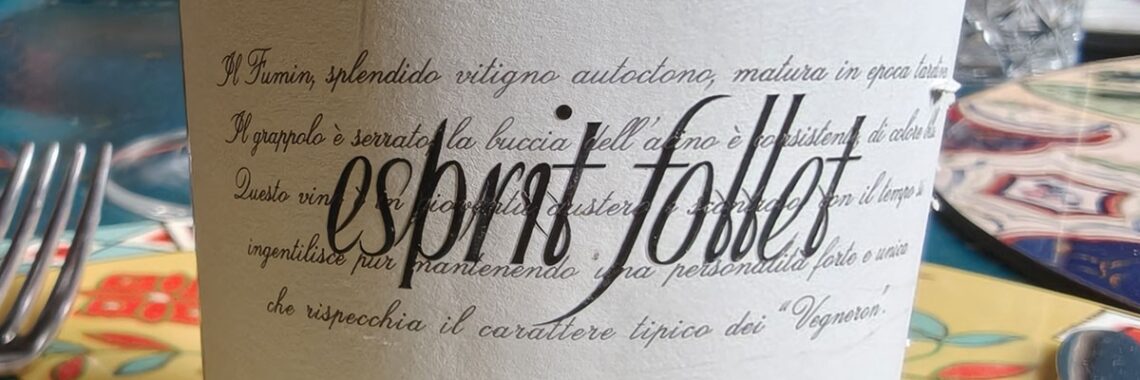 Il Fumin, splendido vitigno autoctono, matura in epoca
Il grappolo è serrato, la buccia dell'acino è consistente, di colore
esprit follet
Questo vino è in gioventù austero e scontroso, con il tempo si
ingentilisce pur mantenendo una personalità forte e unica
che rispecchia il carattere tipico dei "Vegneron".